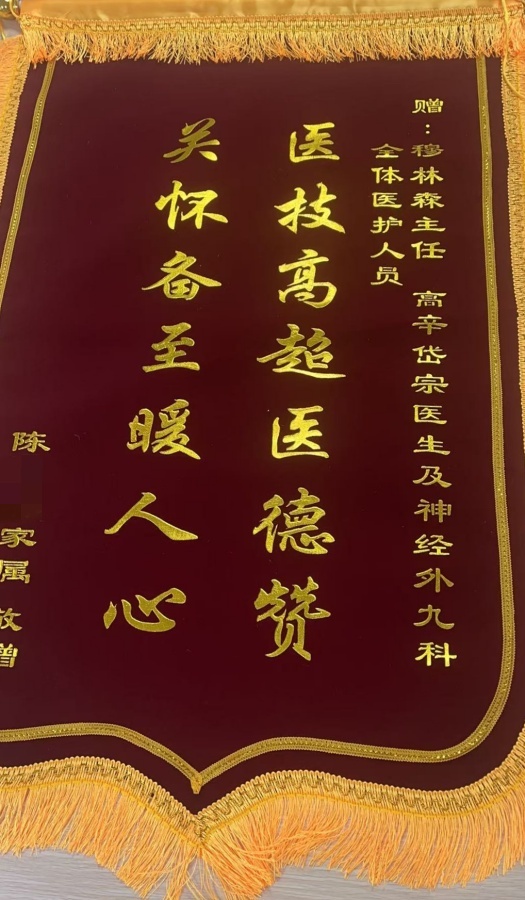 赠：穆林森主任 高辛岱宗医生及神经外九科
全体医护人员
医技高超医德赞
关怀备至暖人心
陈
家属敬赠